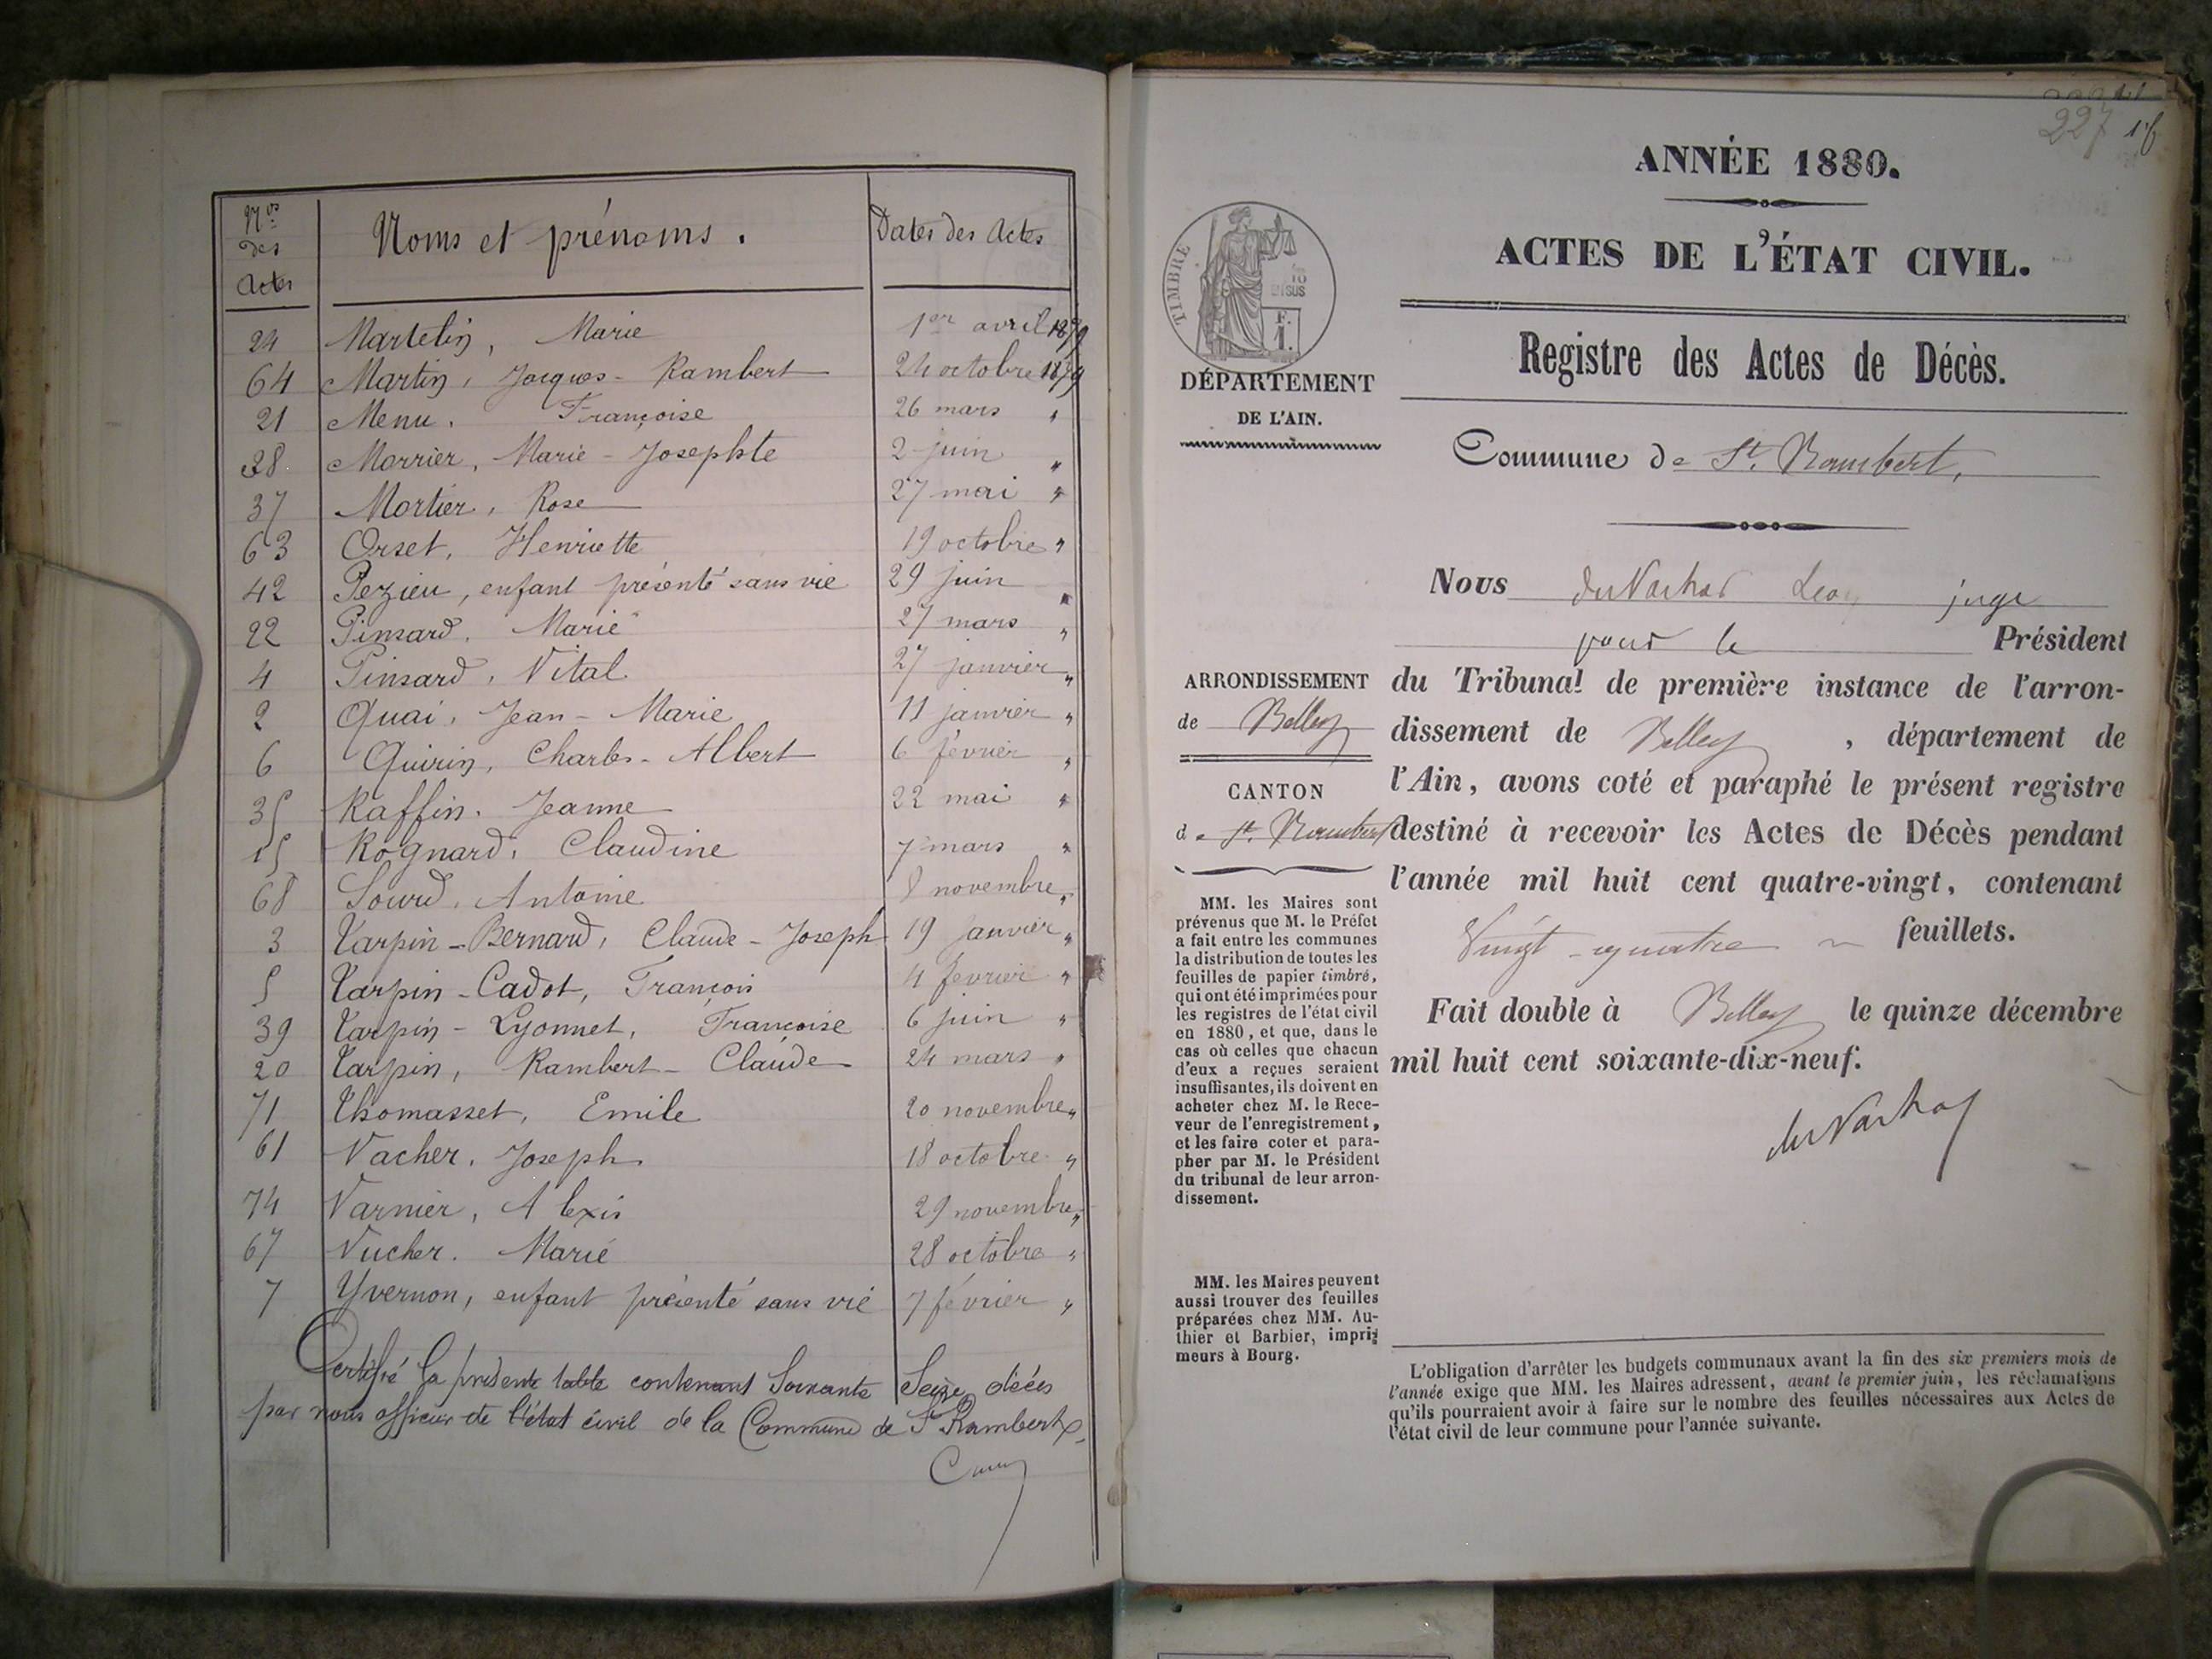 Nos des Actes
Noms et prénoms.
Dates des Actes
24 Martelin, Marie 1er avril 1879
64 Martin, Jacques-Rambert 24 octobre 1879
21 Menu, Françoise 26 mars "
38 Morrier, Marie-Josephte 2 juin "
37 Mortier, Rose 27 mai "
63 Orset, Henriette 19 octobre "
42 Pezieu, enfant présenté sans vie 29 juin "
22 Pinsard, Marie 27 mars "
4 Pinsard, Vital 27 janvier "
2 Quai, Jean-Marie 11 janvier "
6 Quirin, Charles-Albert 6 février "
35 Raffin, Jeanne 22 mai "
15 Rognard, Claudine 7 mars "
68 Sourd, Antoine 8 novembre "
3 Tarpin-Bernard, Claude-Joseph 19 Janvier "
5 Tarpin-Cadot, François 4 fevrier "
39 Tarpin-Lyonnet, Françoise 6 juin "
20 Tarpin, Rambert-Claude 24 mars "
71 Thomasset, Emile 20 novembre "
61 Vacher, Joseph 18 octobre "
74 Varnier, Alexis 29 novembre "
67 Vucher. Marie 28 octobre "
7 Yvernon, enfant présenté sans vie 7 février "
Certifié la présente table contenant Soixante Seize décès
par nous officier de l'état civil de la Commune de St Rambert
227
ANNÉE 1880.
ACTES DE L'ÉTAT CIVIL.
Registre des Actes de Décès.
TIMBRE
DÉPARTEMENT
DE L'AIN.
Commune de St. Rambert,
Nous juge
pour le Président
ARRONDISSEMENT
de Belley
CANTON
de St. Rambert
du Tribunal de première instance de l'arron-
dissement de Belley, département de
l'Ain, avons coté et paraphé le présent registre
destiné à recevoir les Actes de Décès pendant
l'année mil huit cent quatre-vingt, contenant
Vingt-quatre feuillets.
Fait double à Belley le quinze décembre
mil huit cent soixante-dix-neuf.
MM. les Maires sont
prévenus que M. le Préfet
a fait entre les communes
la distribution de toutes les
feuilles de papier timbré,
qui ont été imprimées pour
les registres de l'état civil
en 1880, et que, dans le
cas où celles que chacun
d'eux a reçues seraient
insuffisantes, ils doivent en
acheter chez M. le Rece-
veur de l'enregistrement,
et les faire coter et para-
pher par M. le Président
du tribunal de leur arron-
dissement.
MM. les Maires peuvent
aussi trouver des feuilles
préparées chez MM. Au-
thier et Barbier, impri-
meurs à Bourg.
L'obligation d'arrêter les budgets communaux avant la fin des six premiers mois de
l'année exige que MM. les Maires adressent, avant le premier juin, les réclamations
qu'ils pourraient avoir à faire sur le nombre des feuilles nécessaires aux Actes de
l'état civil de leur commune pour l'année suivante.